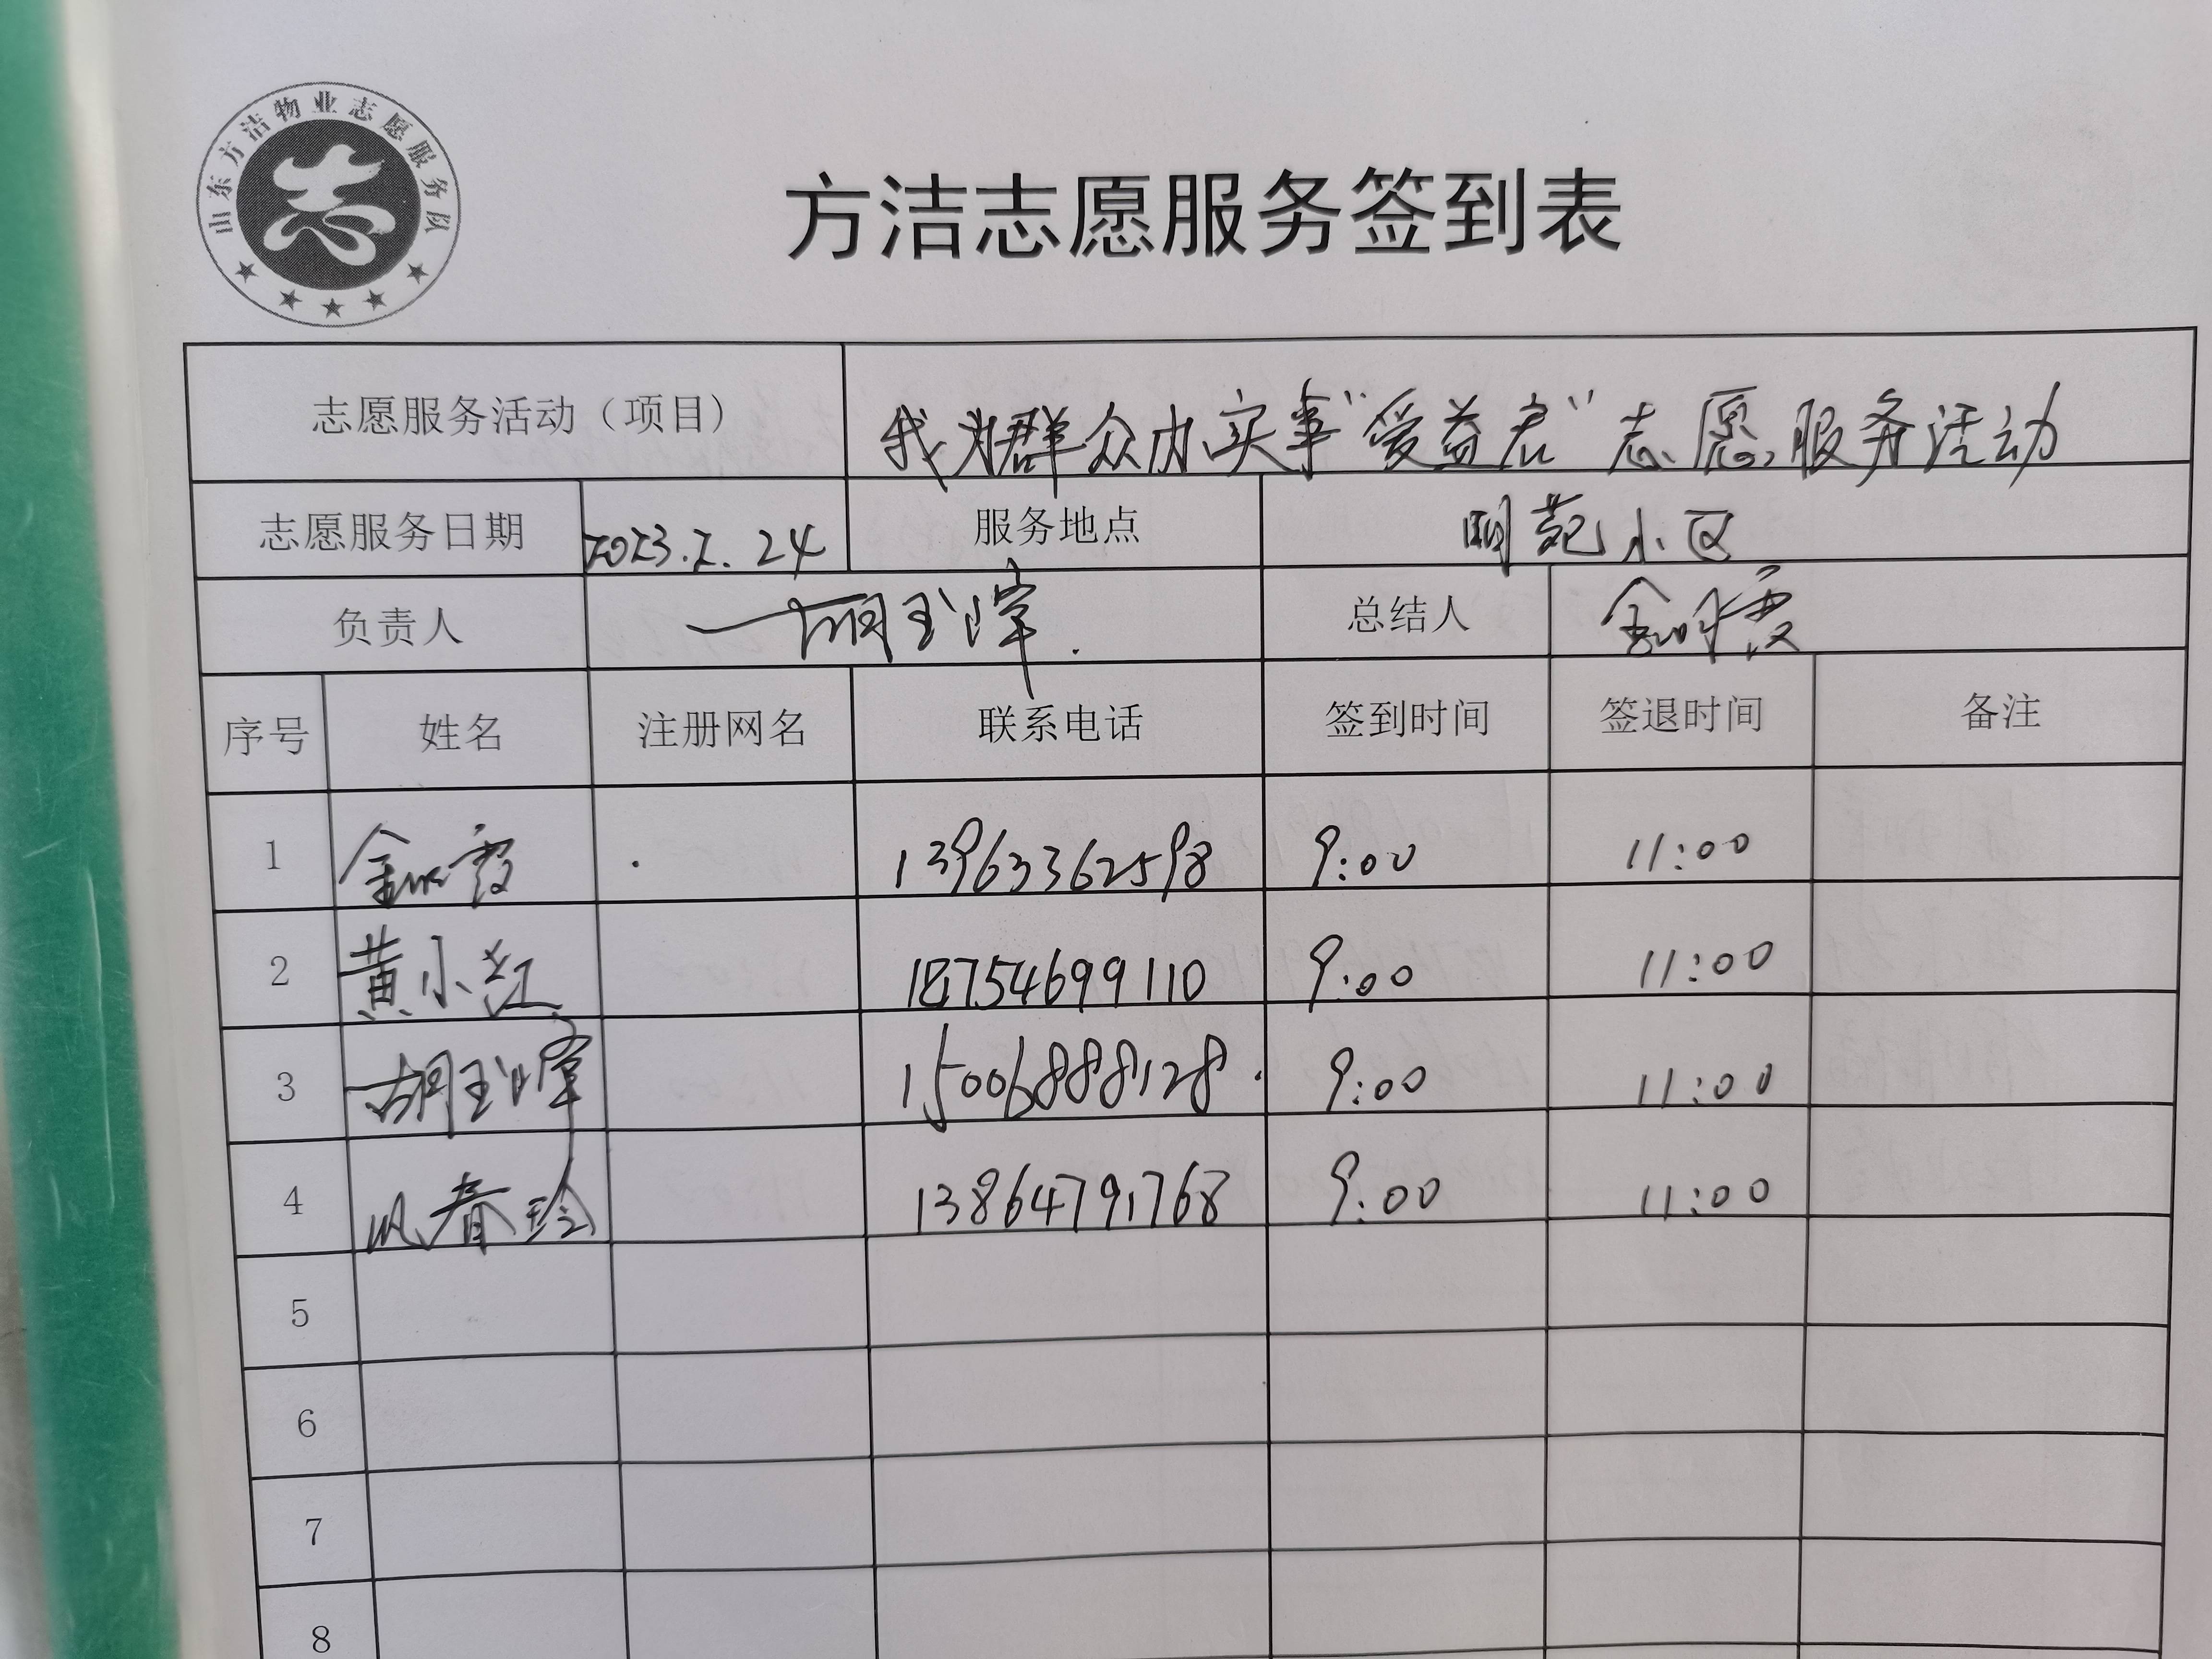 山东方洁物业志愿服务队
方洁志愿服务签到表
志愿服务活动（项目） 我为群众办实事“爱益启”志愿服务活动
志愿服务日期 2023.2.24 服务地点 明苑小区
负责人 胡玉 总结人 金霞
序号 姓名 注册网名 联系电话 签到时间 签退时间 备注
1 金霞 13963362598 9:00 11:00
2 黄小红 18754699110 9:00 11:00
3 胡玉 15006888128 9:00 11:00
4 春玲 13864791768 9:00 11:00
5
6
7
8